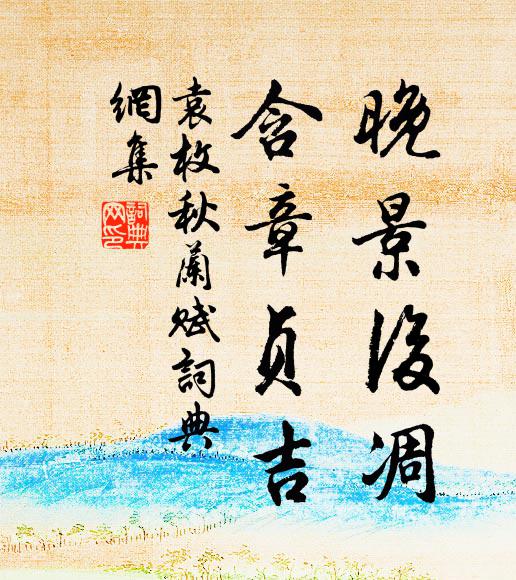 晚景後凋
含章貞吉
袁枚秋蘭賦詞典
網集
詞典
网印